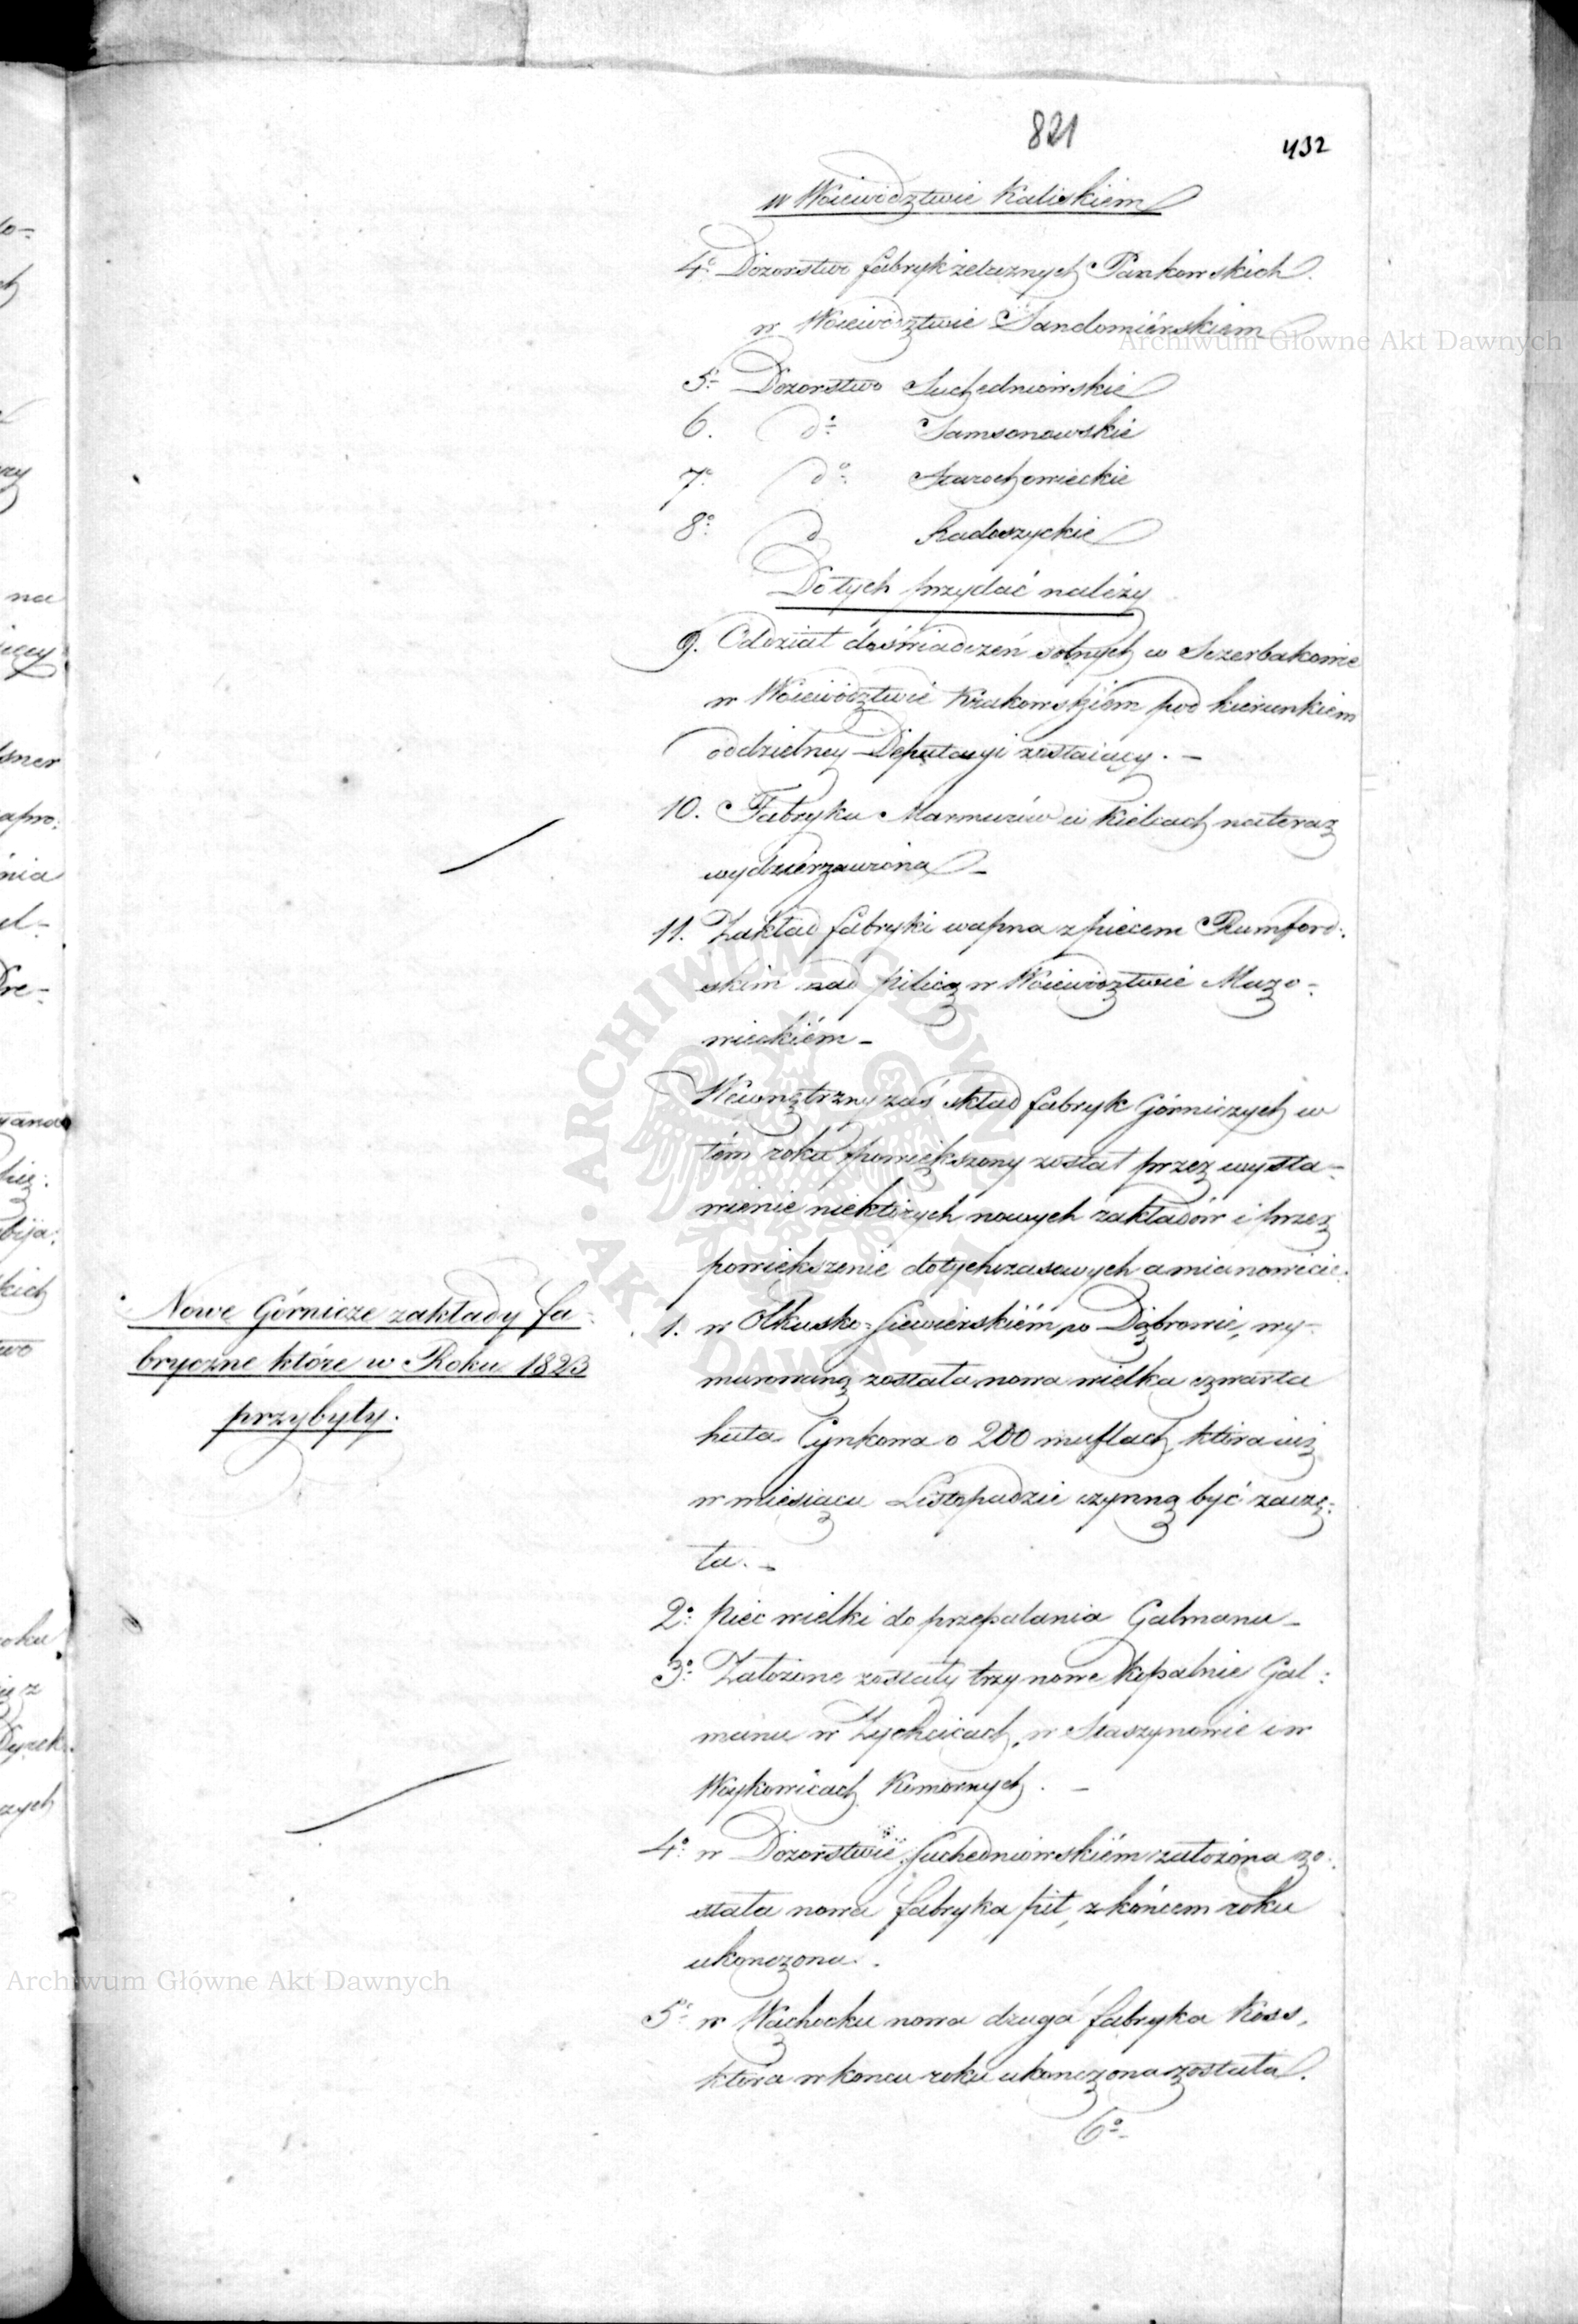 821
432
w Woiewodztwie Kaliskiem
4o. Dozorstwo fabryk żelaznych Pankowskich.
w Woiewodztwie Sandomierskiem
5o. Dozorstwo Suchedniowskie
6. do. Samsonowskie
7o. do. Starachowieckie
8o. d Radoszyckie
Do tych przydać należy
9. Oddział doświadczeń solnych w Szczerbakowie
w Woiewództwie Krakowskiem pod kierunkiem
oddzielney Deputacyi zostaiący. -
10. Fabryka Marmurów w Kielcach na teraz
wydzierżawiona -
11. Zakład fabryki wapna z piecem Rumford:
skim nad Pilicą w Woiewodztwie Mazo-
wieckiém -
Wewnętrzny zaś skład fabryk Górniczych w
tém roku powiększony został przez wysta-
wienie niektórych nowych zakładów i przez
powiekszenie dotychczasowych a mianowicie:
Nowe Górnicze zakłady fa-
bryczne które w Roku 1823
przybyły.
1. w Olkusko-Siewierskiém po Dąbrowie, wy-
murowaną została nowa wielka czwarta
huta Cynkowa o 200 muflach, która iuż
w miesiącu Listopadzie czynną być zaczę-
ta. -
2o. piec wielki do przepalania Galmanu -
3o. Założone zostały trzy nowe kopalnie Gal:
manu w Zychcicach, w Staszynowie i w
Woykowicach Komornych. -
4o. w Dozorstwie Suchedniowskiém założona zo:
stała nowa fabryka pił, z końcem roku
ukonczona.
5o. w Wąchocku nowa druga fabryka Koss,
która w koncu roku ukonczona została.
6o.
Archiwum Główne Akt Dawnych
Archiwum Główne Akt Dawnych
ARCHIWUM GŁÓWNE AKT DAWNYCH